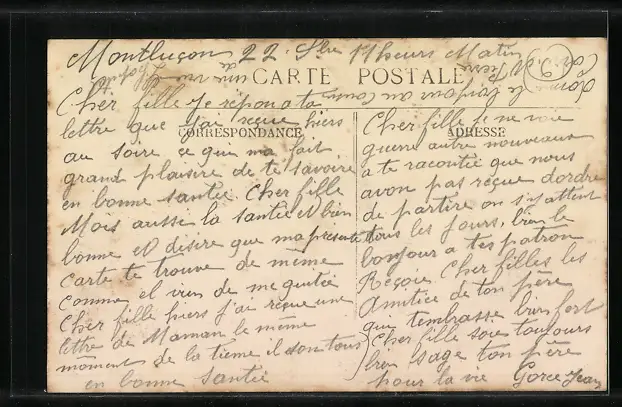 Montluçon 22. 11 heurs Matin
CARTE POSTALE
Cher fille Je répon a ta
lettre que j'ai reçue hiers
CORRESPONDANCE
au soire ce qui ma fait
grand plaisire de te savoire
en bonne santée. Cher fille
Mois aussi la santée et bien
bonne et désire que ma présente
carte te trouve de meme
comme el vien de me quitée
Cher fille hiers j'ai reçue une
lettre de Maman le même
moment de la tienne il son tous
en bonne santée
ADRESSE
Cher fille je ne voie
guere autre nouveaux
a te racontée que nous
avon pas reçue d'ordre
de partire on s'y attent
tous les jours, bien le
bonjour a tes patron
Reçoie Cher filles les
Amitiée de ton père
qui t'embrasse bien fort
Cher fille soie toujours
bien sage ton père
pour la vie Gorce Jean